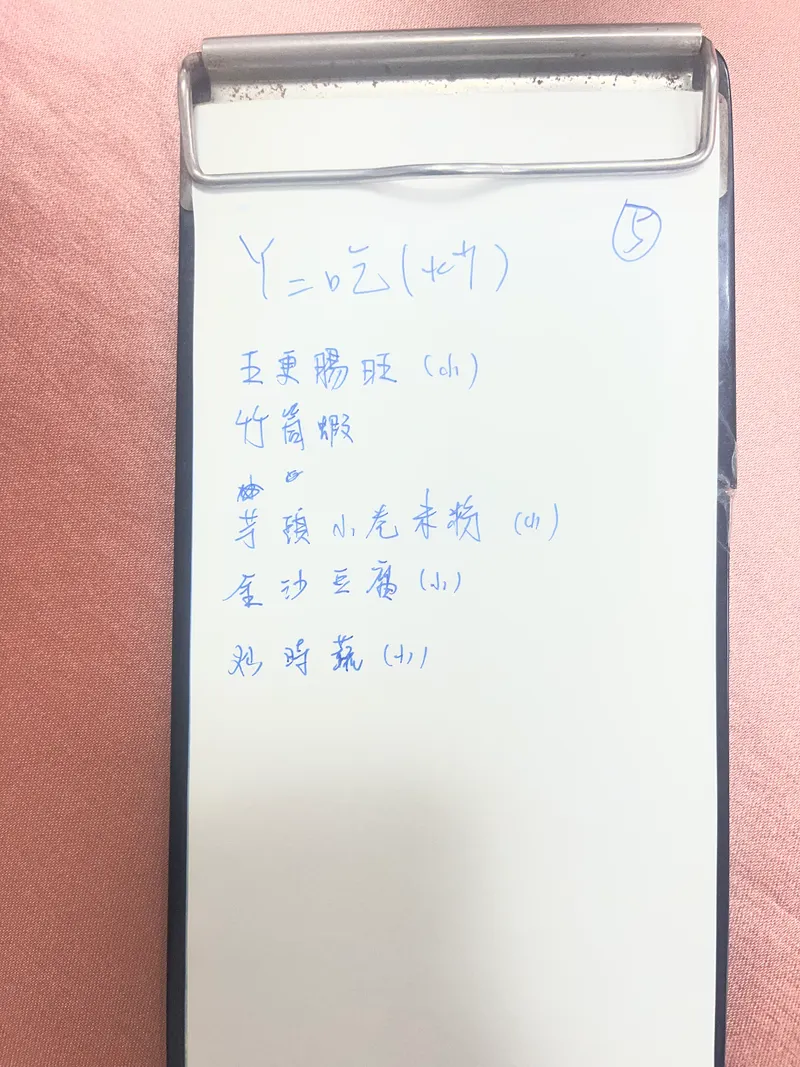 ⑤
Y=吃(
五更腸旺(小)
竹筒蝦
芋頭小卷米粉(小)
金沙豆腐(小)
炒時蔬(小)